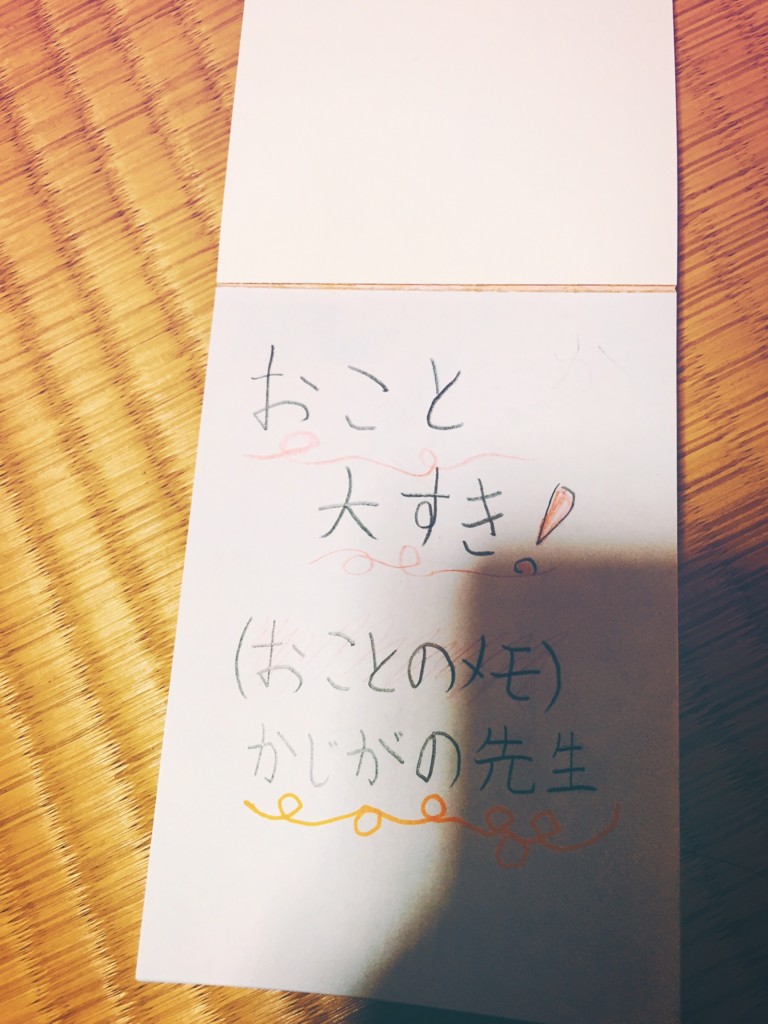 おこと
大すき!
(おことのメモ)
かじがの先生